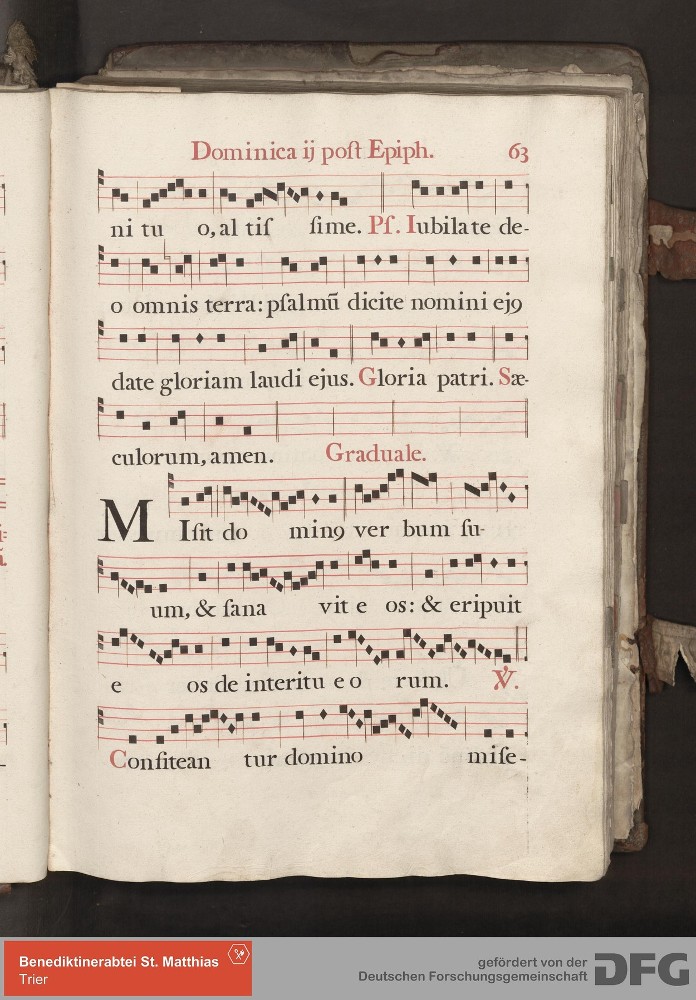 Dominica ij poſt Epiph. 63
ni tu o, al tiſ ſime. Pſ. Iubilate de-
o omnis terra: pſalmū dicite nomini ejꝰ
date gloriam laudi ejus. Gloria patri. Sæ-
culorum, amen. Graduale.
MIſit do minꝰ ver bum ſu-
um, & ſana vit e os: & eripuit
e os de interitu e o rum. ℣.
Conſitean tur domino miſe-
Benediktinerabtei St. Matthias
Trier
gefördert von der
Deutschen Forschungsgemeinschaft DFG